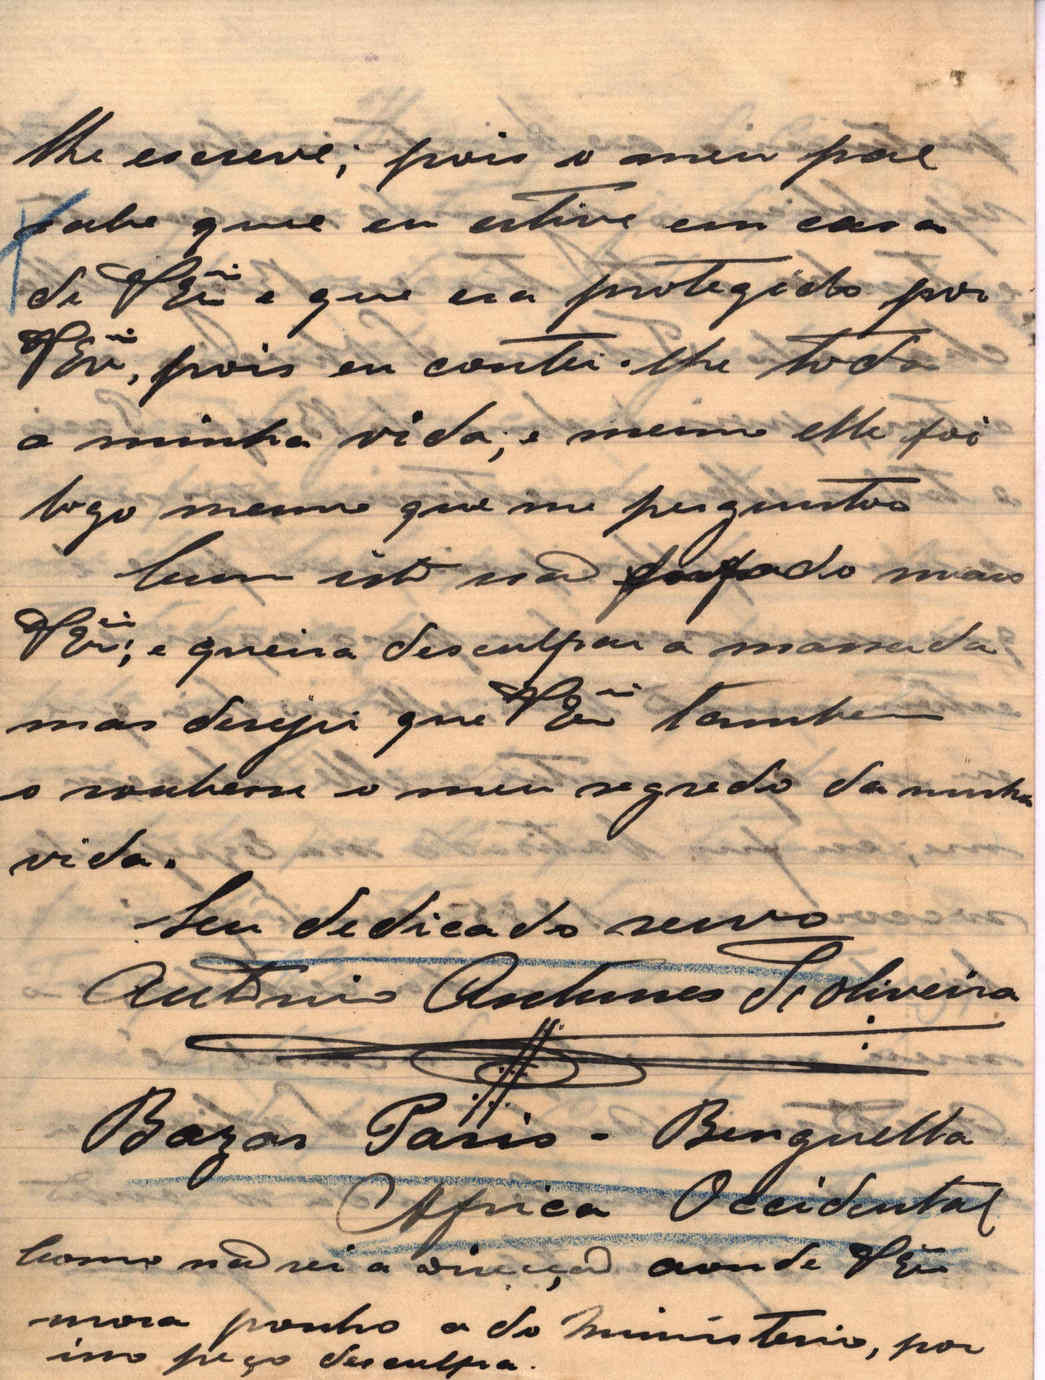 lhe escrevi; pois o meu pae
sabe que eu estive em casa
de V Exciª e que era protegido por
V Exciª, pois eu contei-lhe toda
a minha vida; e mesmo elle foi
logo mesmo que me perguntou
Com isto não mais
V Exciª; e queira desculpar a massada
mas desejei que V Exciª tambem
o soubesse o meu segredo da minha
vida.
Seu dedicado servo
Antonio Antunes d'Oliveira
Bazar Paris - Benguella
Africa Occidental
Como não sei a direcção aonde V Exciª
mora ponho a do Ministerio, por
isso peço desculpa.